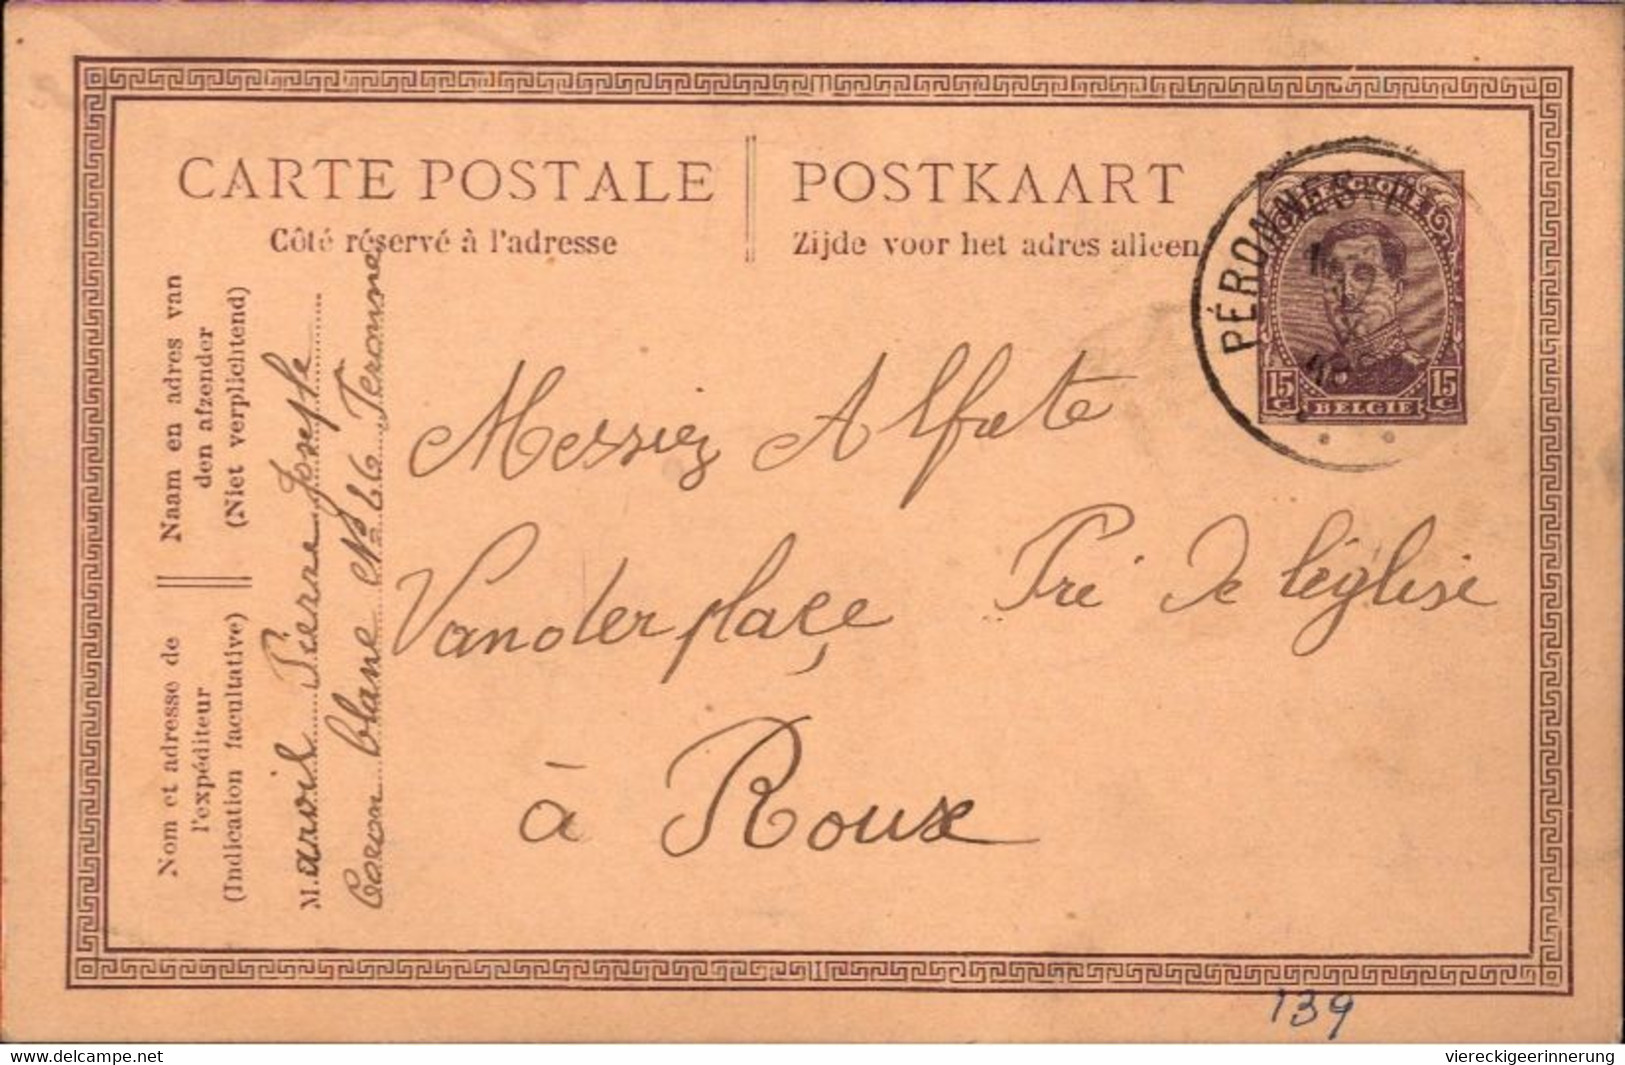 CARTE POSTALE
Côté réservé à l'adresse
POSTKAART
Zijde voor het adres alleen
PÉRONNES
15 C BELGIE 15 C
Naam en adres van
den afzender
(Niet verplichtend)
Nom et adresse de
l'expéditeur
(Indication facultative)
M. Pierre Joseph
Coron blanc N° 26 Peronne
Alfrete
Vanderplaçe Pré De l'église
à Roux
139
delcampe.net
viereckigeerinnerung